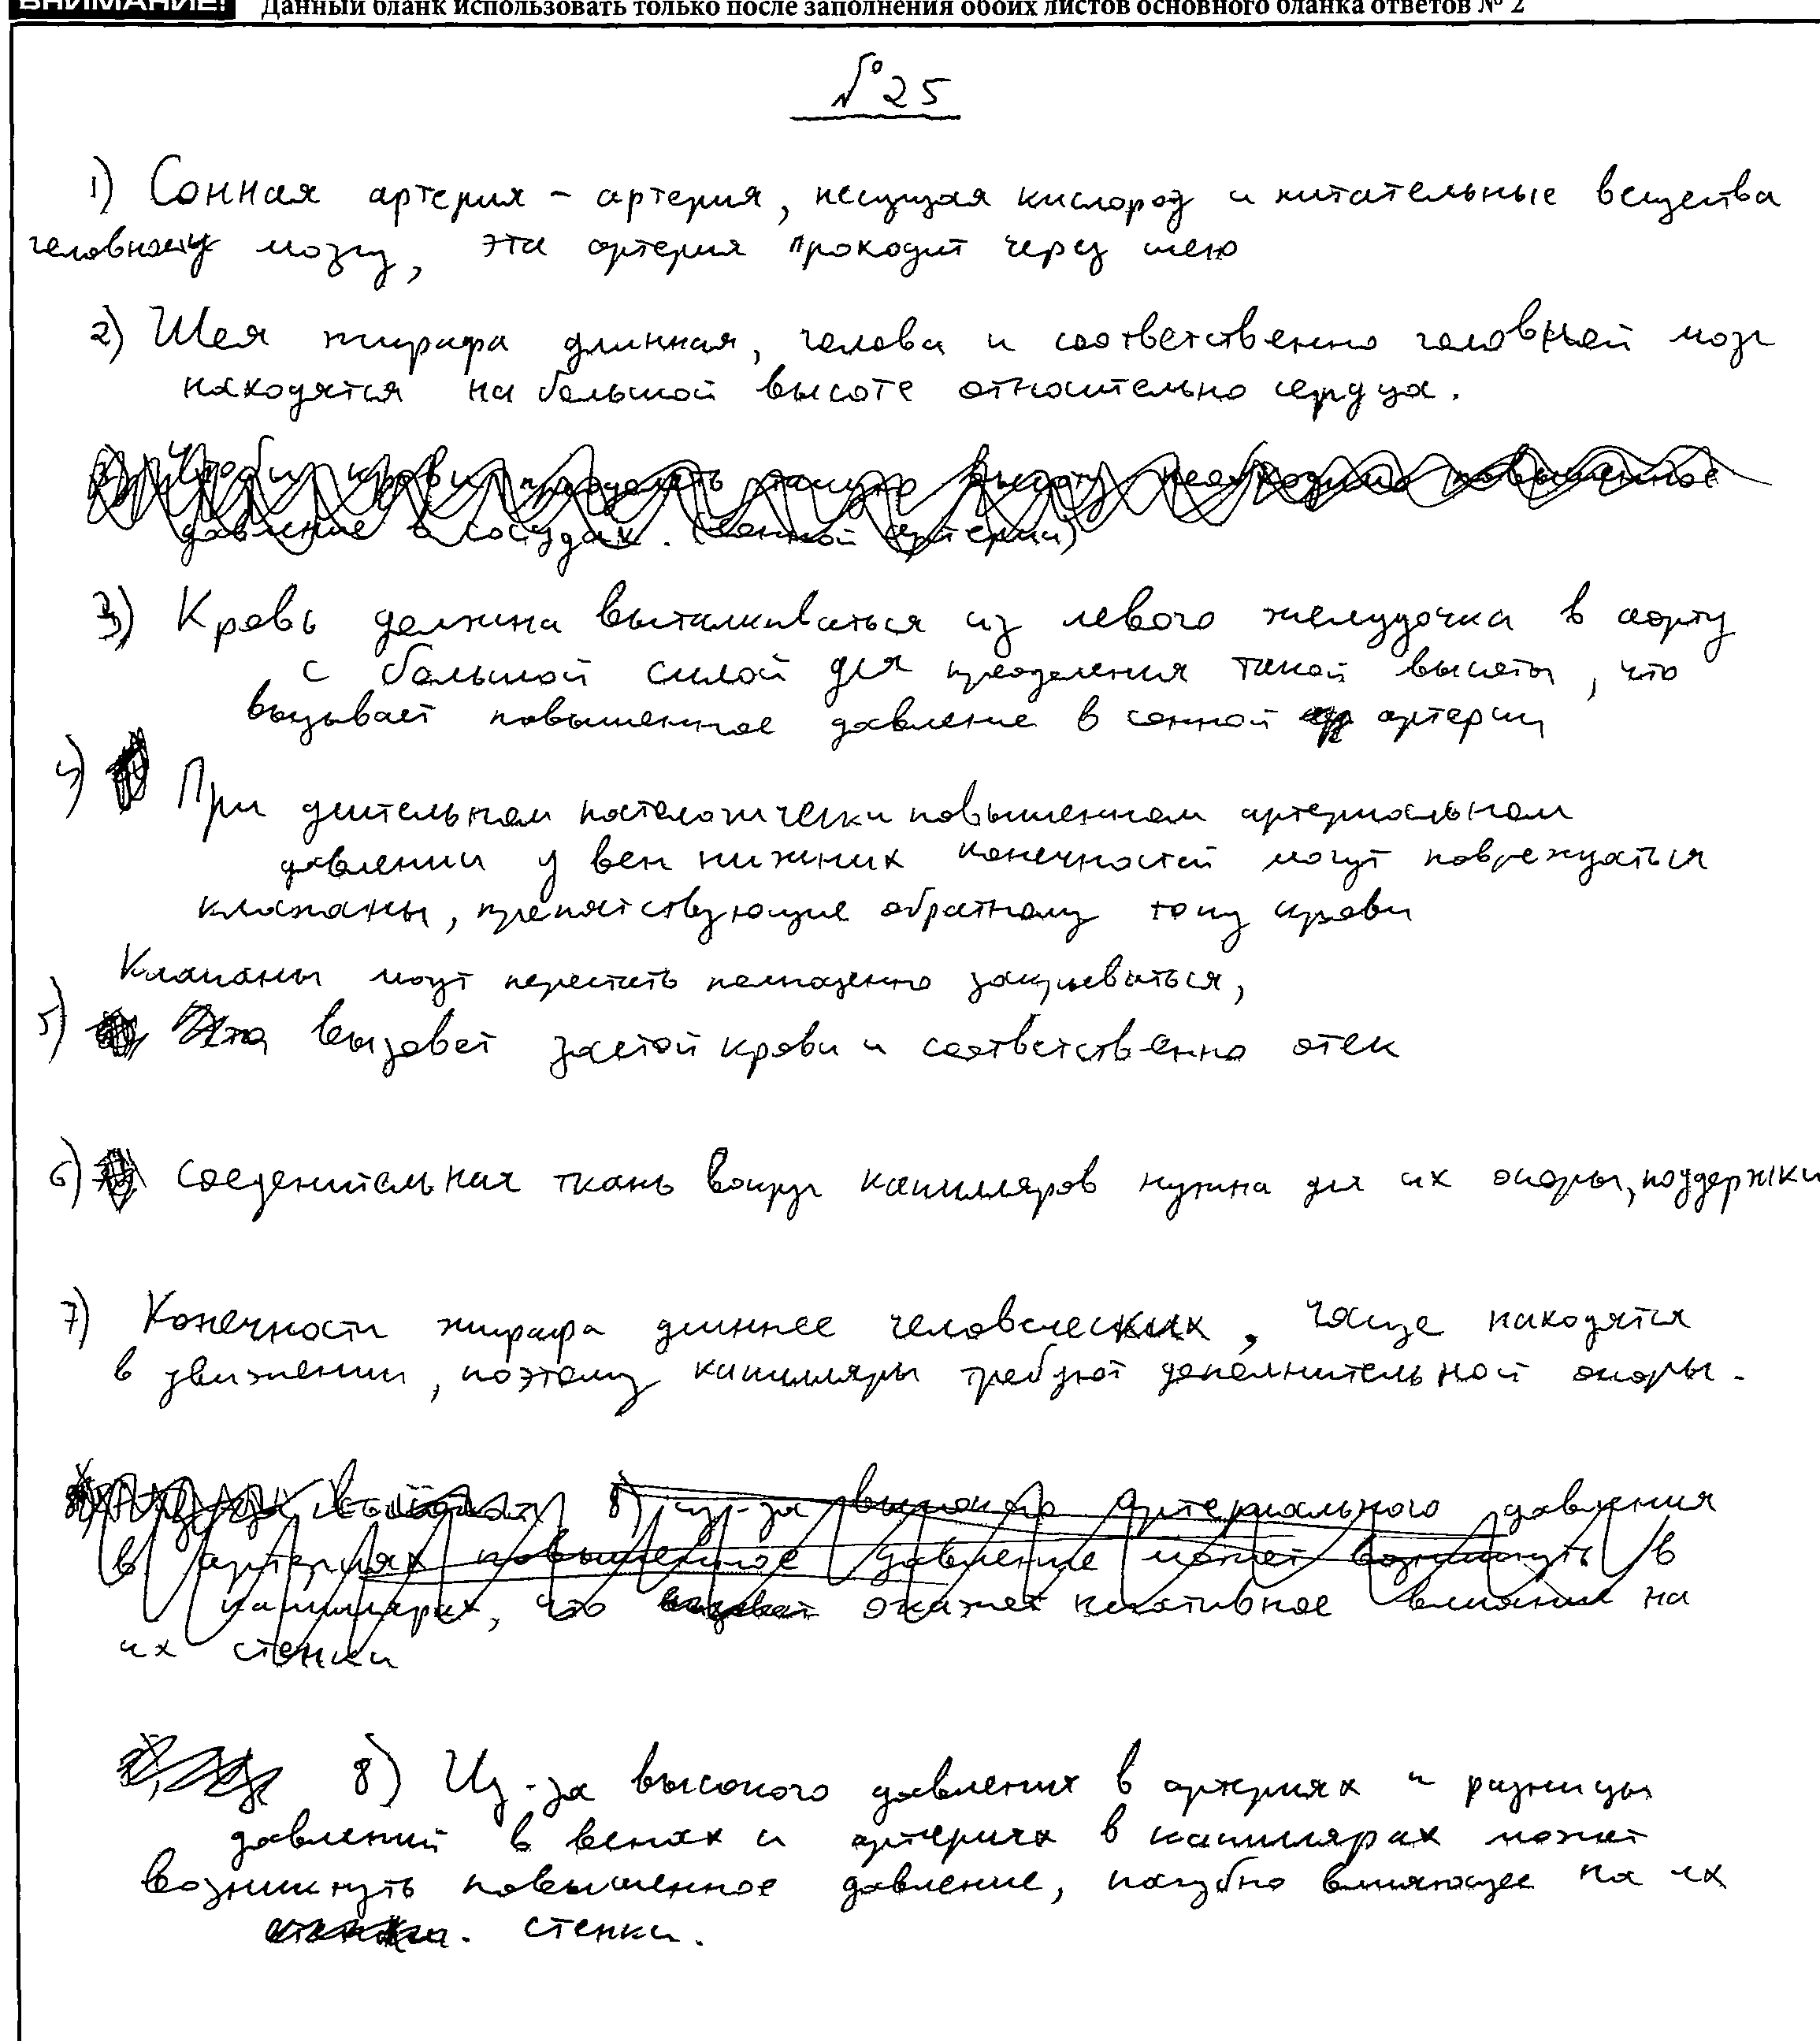 ВНИМАНИЕ! Данный бланк использовать только после заполнения обоих листов основного бланка ответов № 2
№25
1) Сонная артерия – артерия, несущая кислород и питательные вещества
головному мозгу, эта артерия проходит через шею
2) Шея жирафа длинная, голова и соответственно головной мозг
находятся на большой высоте относительно сердца.
3) Чтобы крови преодолеть такую высоту необходимо повышенное
давление в сосудах. (сонной артерии)
3) Кровь должна выталкиваться из левого желудочка в аорту
с большой силой для преодоления такой высоты, что
вызывает повышенное давление в сонной артерии
4) При длительном патологически повышенном артериальном
давлении у вен нижних конечностей могут повреждаться
клапаны, препятствующие обратному току крови
Клапаны могут перестать полноценно закрываться,
5) Это вызовет застой крови и соответственно отек
6) соеденительная ткань вокруг капилляров нужна для их опоры, поддержки
7) Конечности жирафа длиннее человеческих, чаще находятся
в движении, поэтому капилляры требуют дополнительной опоры.
8) из-за высокого артериального давления
в артериях повышенное давление может возникнуть в
капиллярах, что окажет негативное влияние на
их стенки
8) Из-за высокого давления в артериях и разницы
давлений в венах и артериях в капиллярах может
возникнуть повышенное давление, пагубно влияющее на их
стенки.